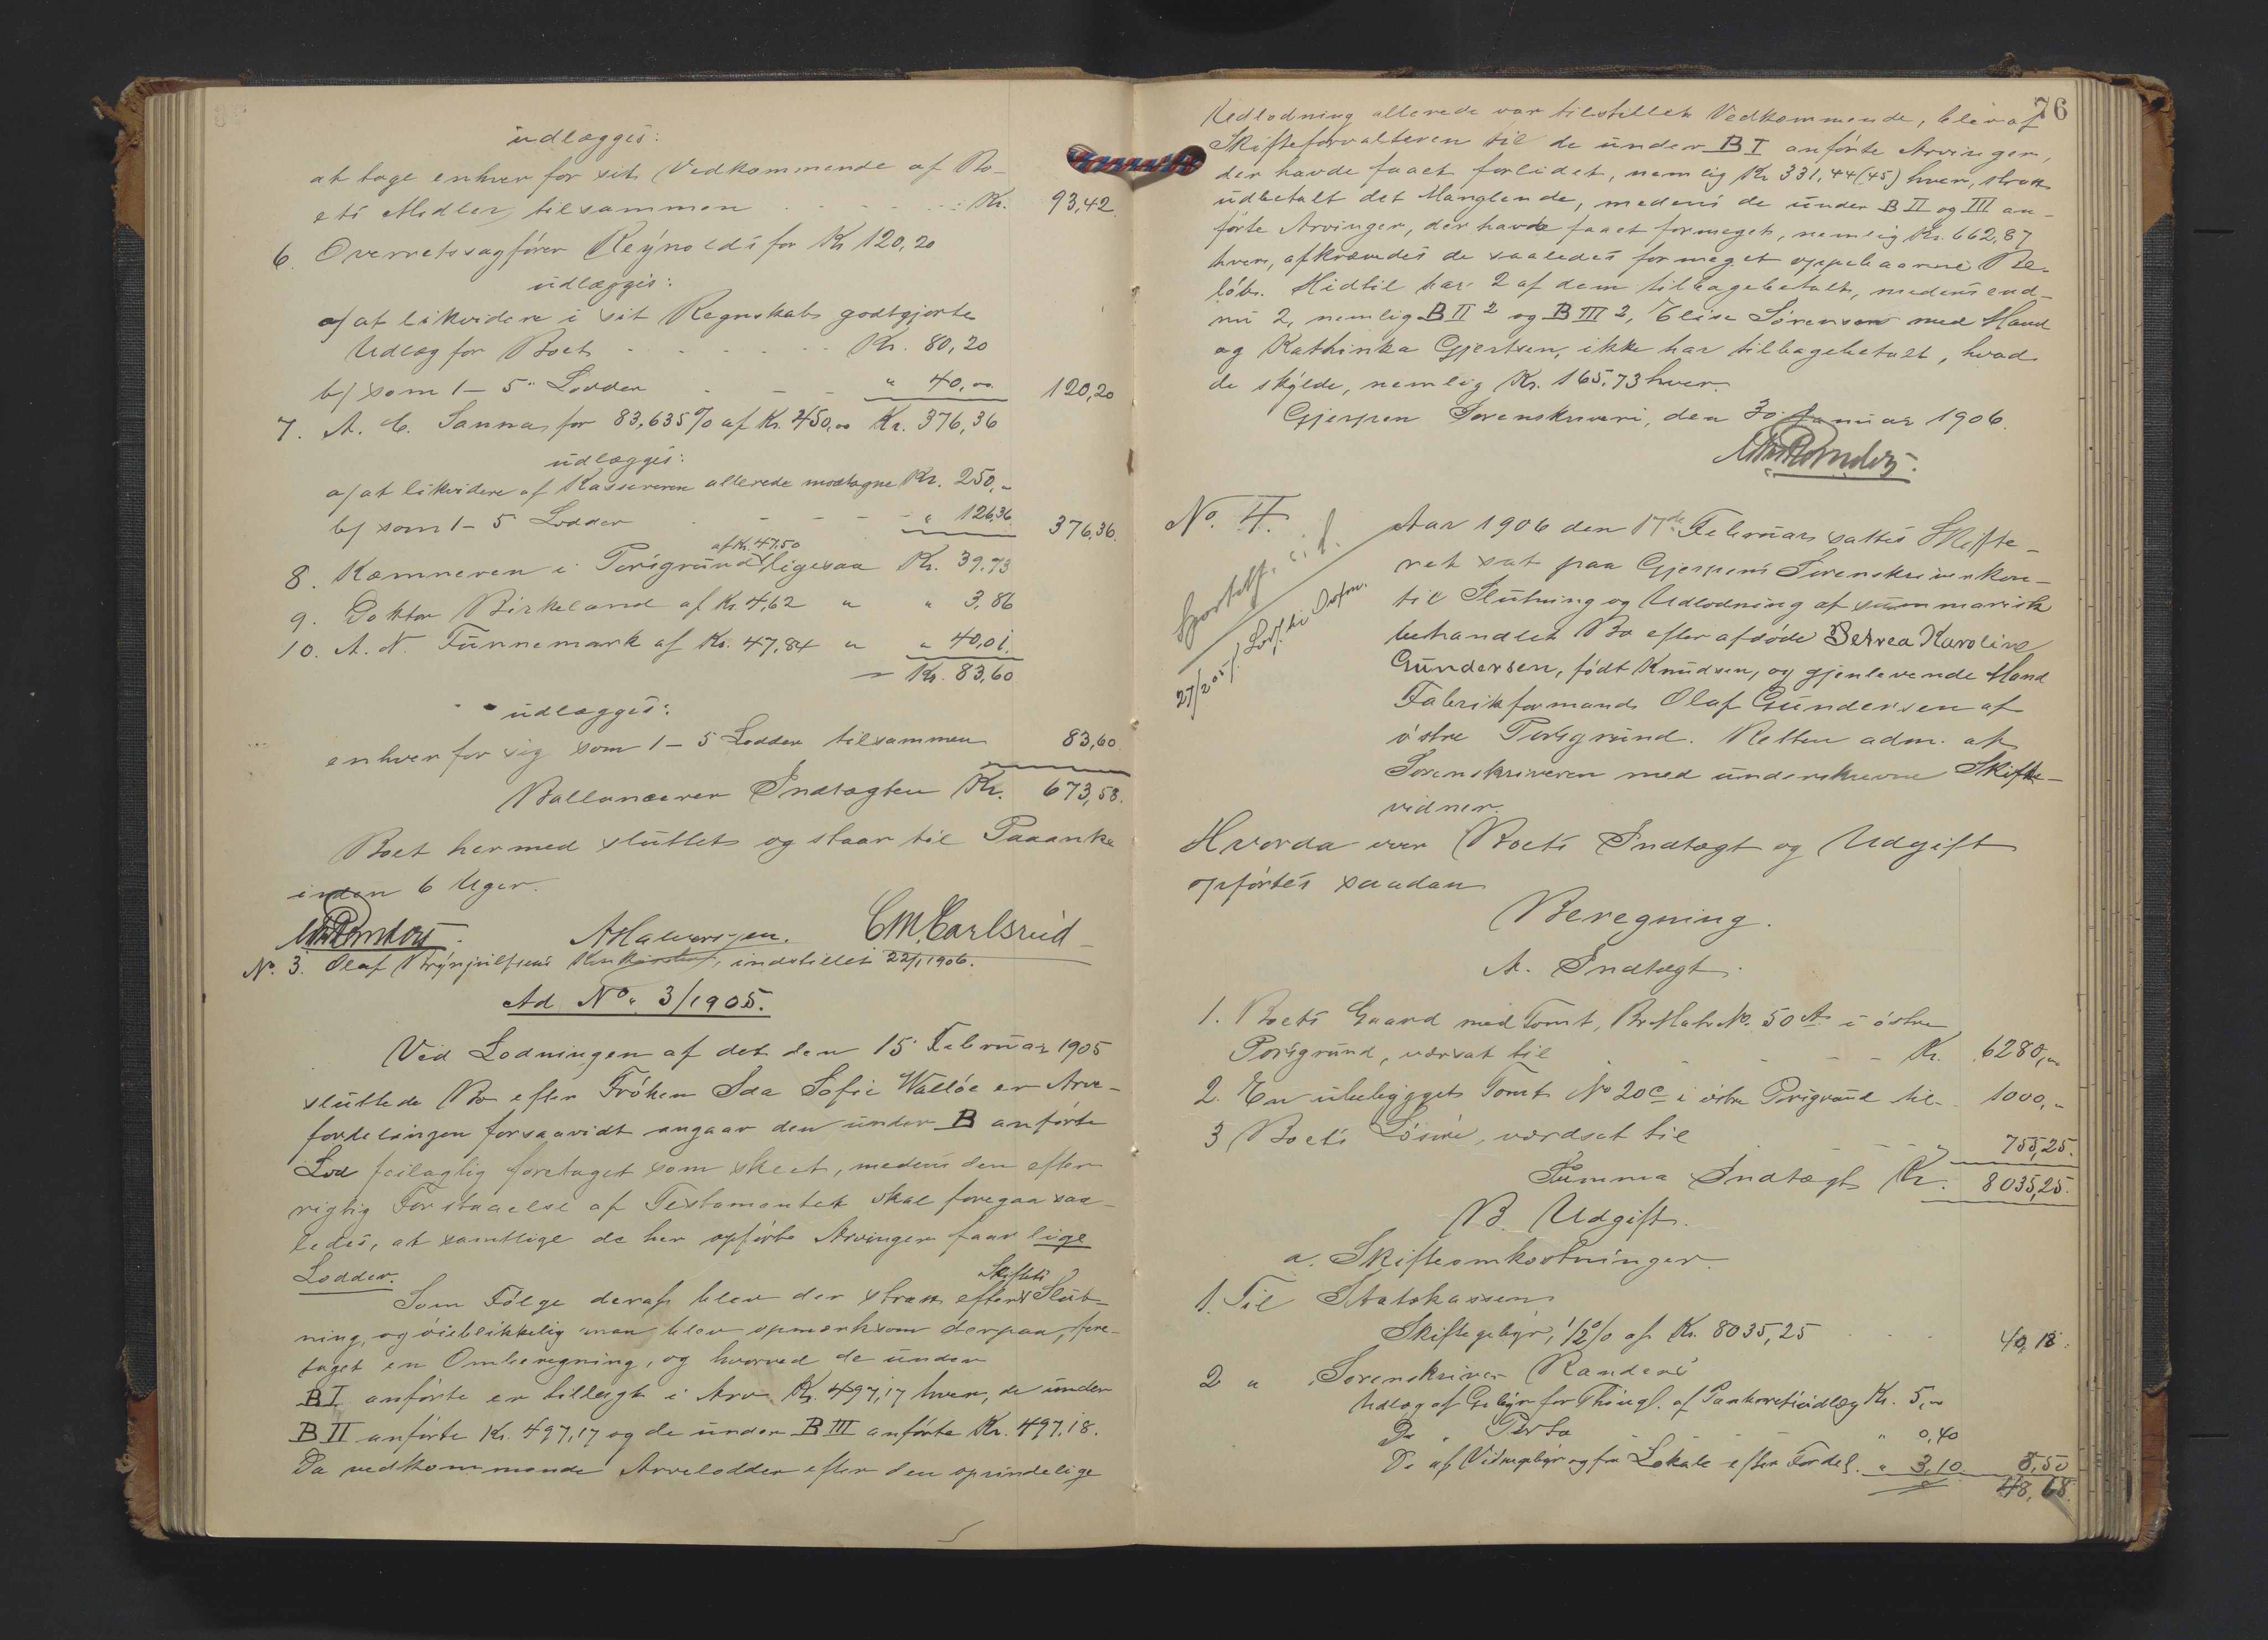 udlægges:
at tage enhver for sit Vedkommende af Bo-
ets Midler, tilsammen Kr. 93,42
6. Overretssagfører Reynolds for Kr 120,20
udlægges:
a/ at likvidere i sit Regnskab godtgjorte
Udlæg for Boet Kr. 80,20
b/ som 1-5 Lodder " 40,00 120,20
7. A. C. Sannas for 83,635% af Kr. 450,00 Kr. 376,36
udlægges:
a/ at likvidere af Kassereren allerede modtagne Kr. 250,"
b/ som 1-5 Lodder " 126,36 376,36.
af Kr. 47,50
8. Kæmneren i Porsgrund ligesaa Kr. 39,73
9. Doktor Birkeland af Kr. 4,62 " " 3,86
10. A. N. Funnemark af Kr. 47,84 " " 40,01.
Kr. 83,60
udlægges:
enhver for sig som 1-5 Lodder tilsammen 83,60
Ballancerer Indtægten Kr. 673,58.
Boet hermed sluttet og staar til Paaanke
inden 6 Uger.
A Halvorsen. C.M. Carlsrud
No. 3. Olaf Brynjulfsens Konkursbo, indstillet 22/1 1906.
Ad No. 3/1905.
Ved Lodningen af det den 15 Februar 1905
sluttede Bo efter Frøken Ida Sofie Walløe er Arve-
fordelingen forsaavidt angaar den under B anførte
Lod feilagtig foretaget som skeet, medens den efter
rigtig Forstaaelse af Testamentet skal foregaa saa-
ledes, at samtlige de her opførte Arvinger faar lige
Lodder.
Skiftets
Som Følge deraf blev der strax efter Slut-
ning, og øieblikkelig man blev opmerksom derpaa, fore-
taget en Omberegning, og hvorved de under
B I anførte er tillagt i Arv Kr. 497,17 hver, de under
B II anførte Kr. 497,17 og de under B III anførte Kr. 497,18.
Da vedkommende Arvelodder efter den oprindelige
76
Udlodning allerede var tilstillet Vedkommende, blev af
Skifteforvalteren til de under B I anførte Arvinger,
der havde faaet forlidet, nemlig Kr 331,44 (45) hver, strax
udbetalt det Manglende, medens de under B II og III an-
førte Arvinger, der havde faaet formeget, nemlig Kr. 662,87
hver, afkrævedes de saaledes formeget oppebaarne Be-
løb. Hidtil har 2 af dem tilbagebetalt, medens end-
nu 2, nemlig B II 2 og B III 2, Elise Sørensen med Mand
og Kathinka Gjertsen, ikke har tilbagebetalt, hvad
de skylde, nemlig Kr. 165,73 hver.
Gjerpen Sorenskriveri, den 30 Januar 1906.
No. 4.
Aar 1906 den 17de Februar sattes Skifte-
ret sat paa Gjerpens Sorenskriverkon-
til Slutning og Udlodning af summarisk
behandlet Bo efter afdøde Petrea Karoline
Gundersen, født Knudsen, og gjenlevende Mand
Fabrikformand Olaf Gundersen af
østre Porsgrund. Retten adm. af
Sorenskriveren med underskrevne Skifte-
vidner.
Hvorda over Boets Indtægt og Udgift
opførtes saadan
Beregning.
A. Indtægt.
1. Boets Gaard med Tomt, Br. Matr. No. 50 A i østre
Porsgrund, værdsat til Kr. 6280,"
2. En ubebygget Tomt No 20 c i østre Porsgrund til 1000,"
3 Boets Løsøre, værdsat til " 755,25.
Summa Indtægt Kr. 8035,25.
B. Udgift.
a. Skifteomkostninger.
1. Til Statskassen
Skiftegebyr, 1/2% af Kr. 8035,25 40,18.
2 " Sorenskriver Randers
Udlæg af Gebyr for Thingl. af Panteretsudlæg Kr. 5,"
Do " Porto " 0,40
Do af Vidnegebyr og for Lokale efter Fordel. " 3,10 8,50
48,68.